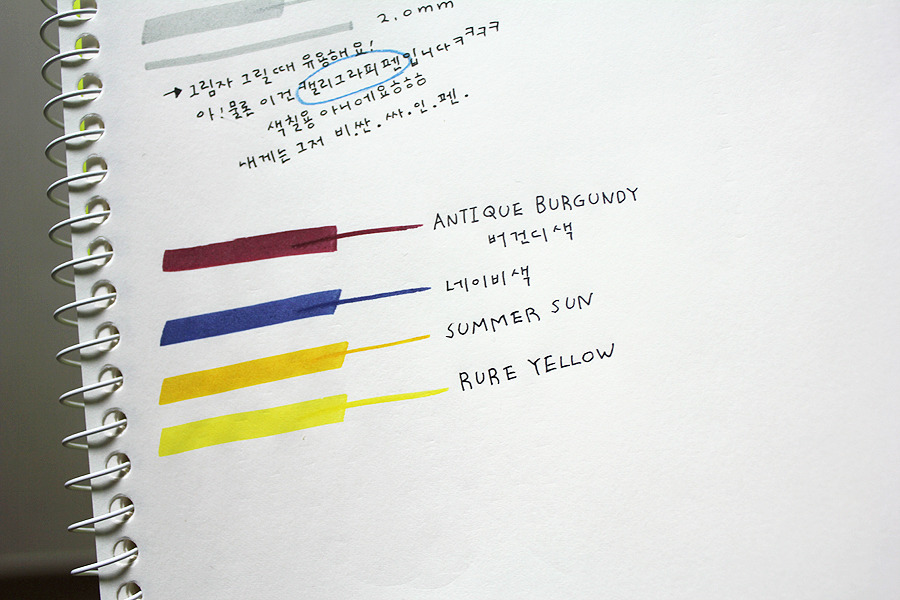 2.0mm
→그림자 그릴때 유용해요!
아!물론 이건 캘리그라피펜입니다ㅋㅋㅋㅋ
색칠용 아니에요ㅎㅎㅎ
내게는 그저 비.싼.싸.인.펜.
ANTIQUE BURGUNDY
버건디색
네이비색
SUMMER SUN
RURE YELLOW